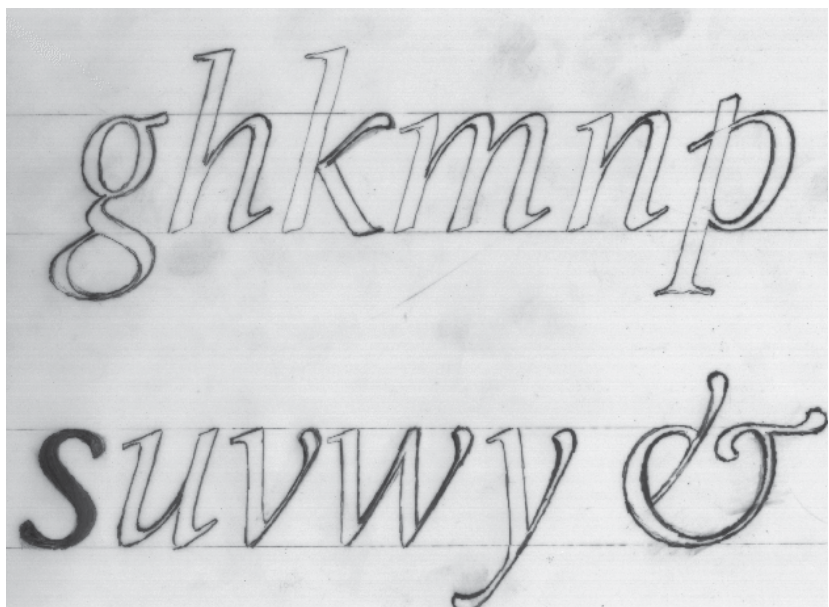 ghkmnp
suvwy &